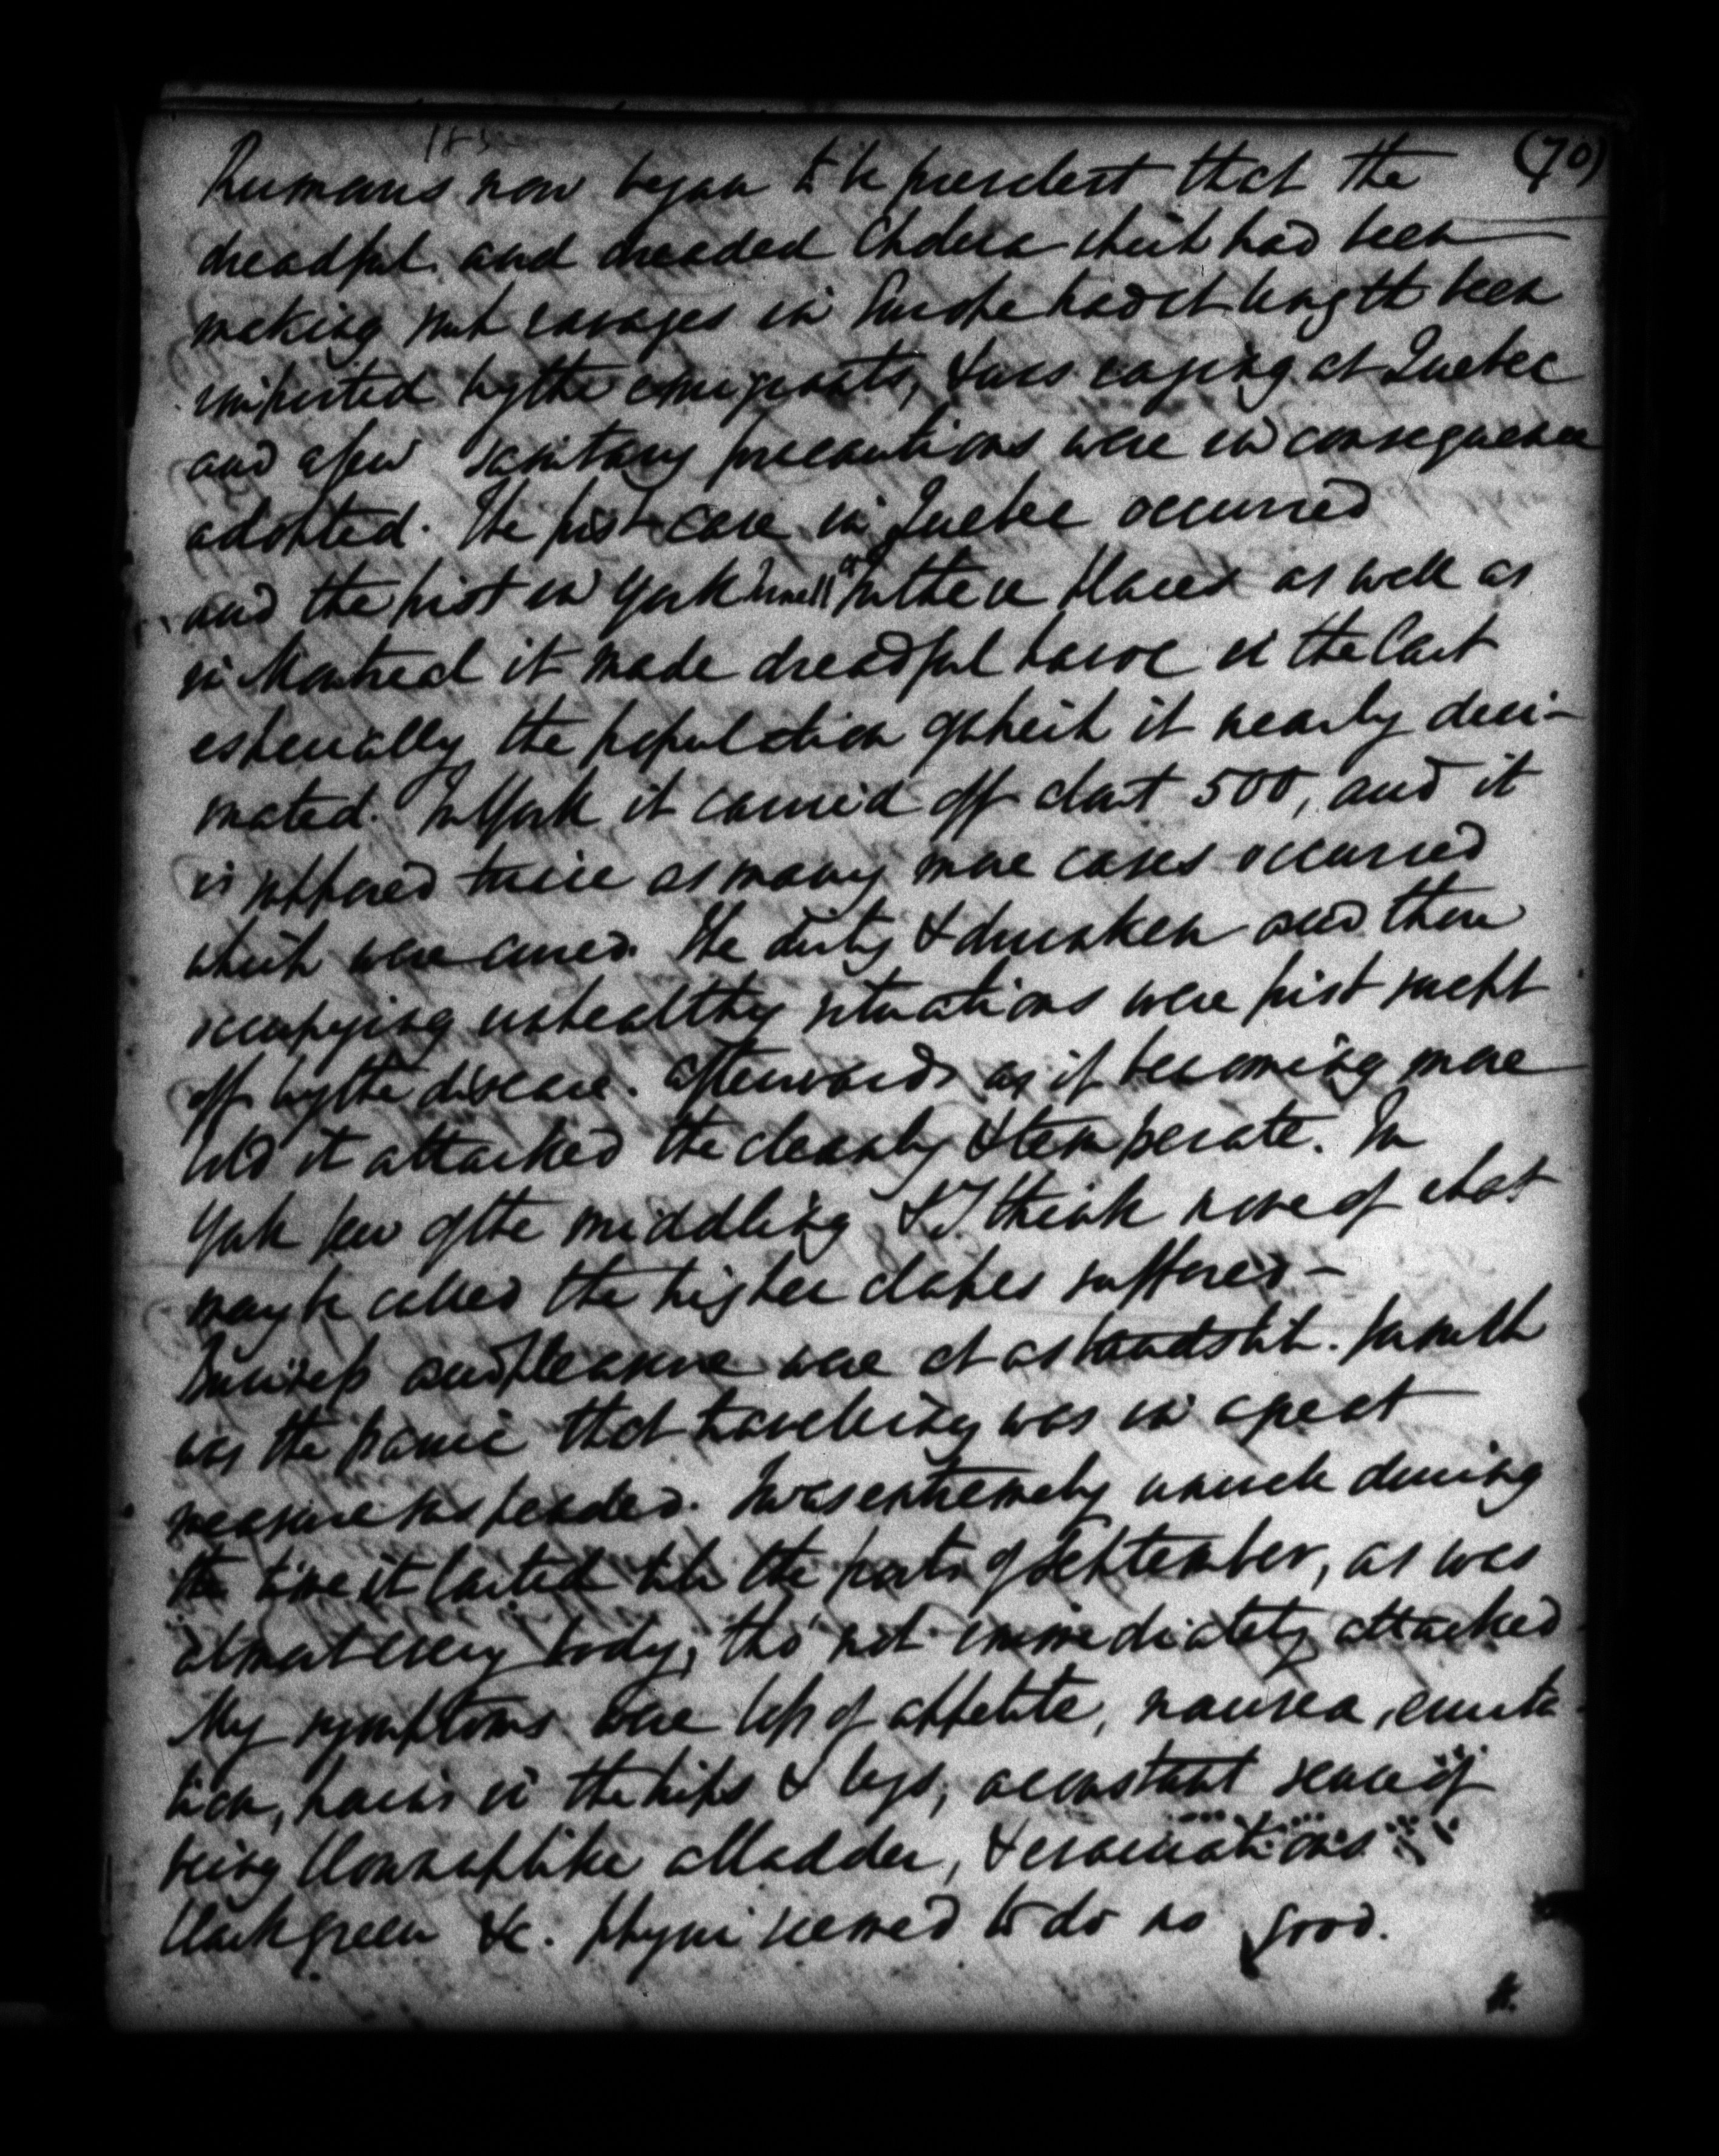 (70)
Rumours now began to be prevalent that the
dreadful and dreaded Cholera which had been
making such ravages in Europe had at length been
imported by the emigrants, & was raging at Quebec
and a few sanitary precautions were in consequence
adopted. The first case in Quebec occurred
and the first in York In these places as well as
in Montreal it made dreadful havoc in the last
especially the population of which it nearly deci-
mated. In York it carried off about 500, and it
is supposed twice as many more cases occurred
which were cured. The dirty & drunken and those
occupying unhealthy situations were first swept
off by the disease. Afterwards as if becoming more
bold it attacked the cleanly & temperate. In
York few of the middling & I think none of what
may be called the higher classes suffered—
Business and pleasure were at a standstill. So much
was the panic that travelling was in a great
measure suspended. I was extremely unwell during
the time it lasted till the frosts of September, as was
almost every body, tho' not immediately attacked
My symptoms were loss of appetite, nausea, eructa-
tion, pains in the hips & legs, a constant sense of
being blown up like a bladder, & evacuations
black green &c. Physic seemed to do no good.